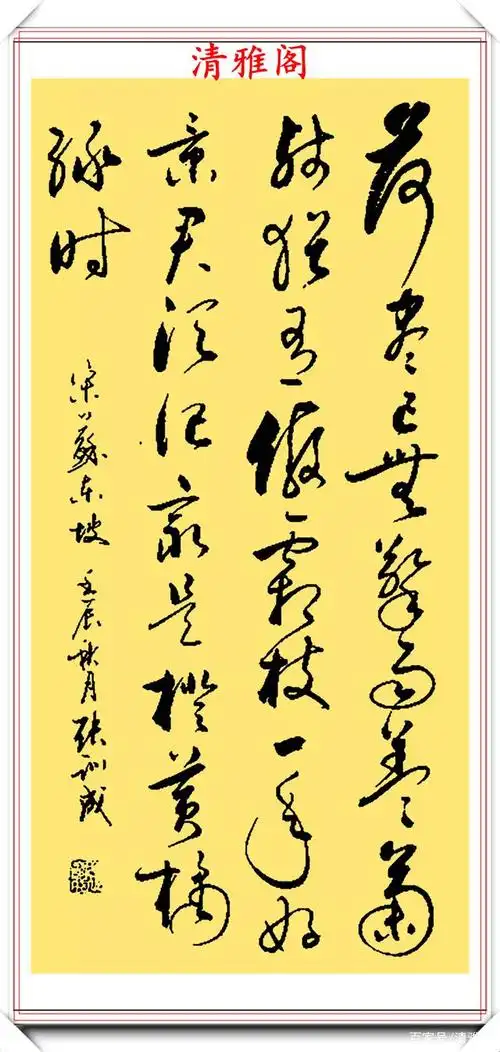 清雅阁
荷盡已無擎雨蓋菊
殘猶有傲霜枝一年好
景君須记最是橙黄橘
緑时
宋蘇东坡 壬辰秋月张训成
百家号/清雅